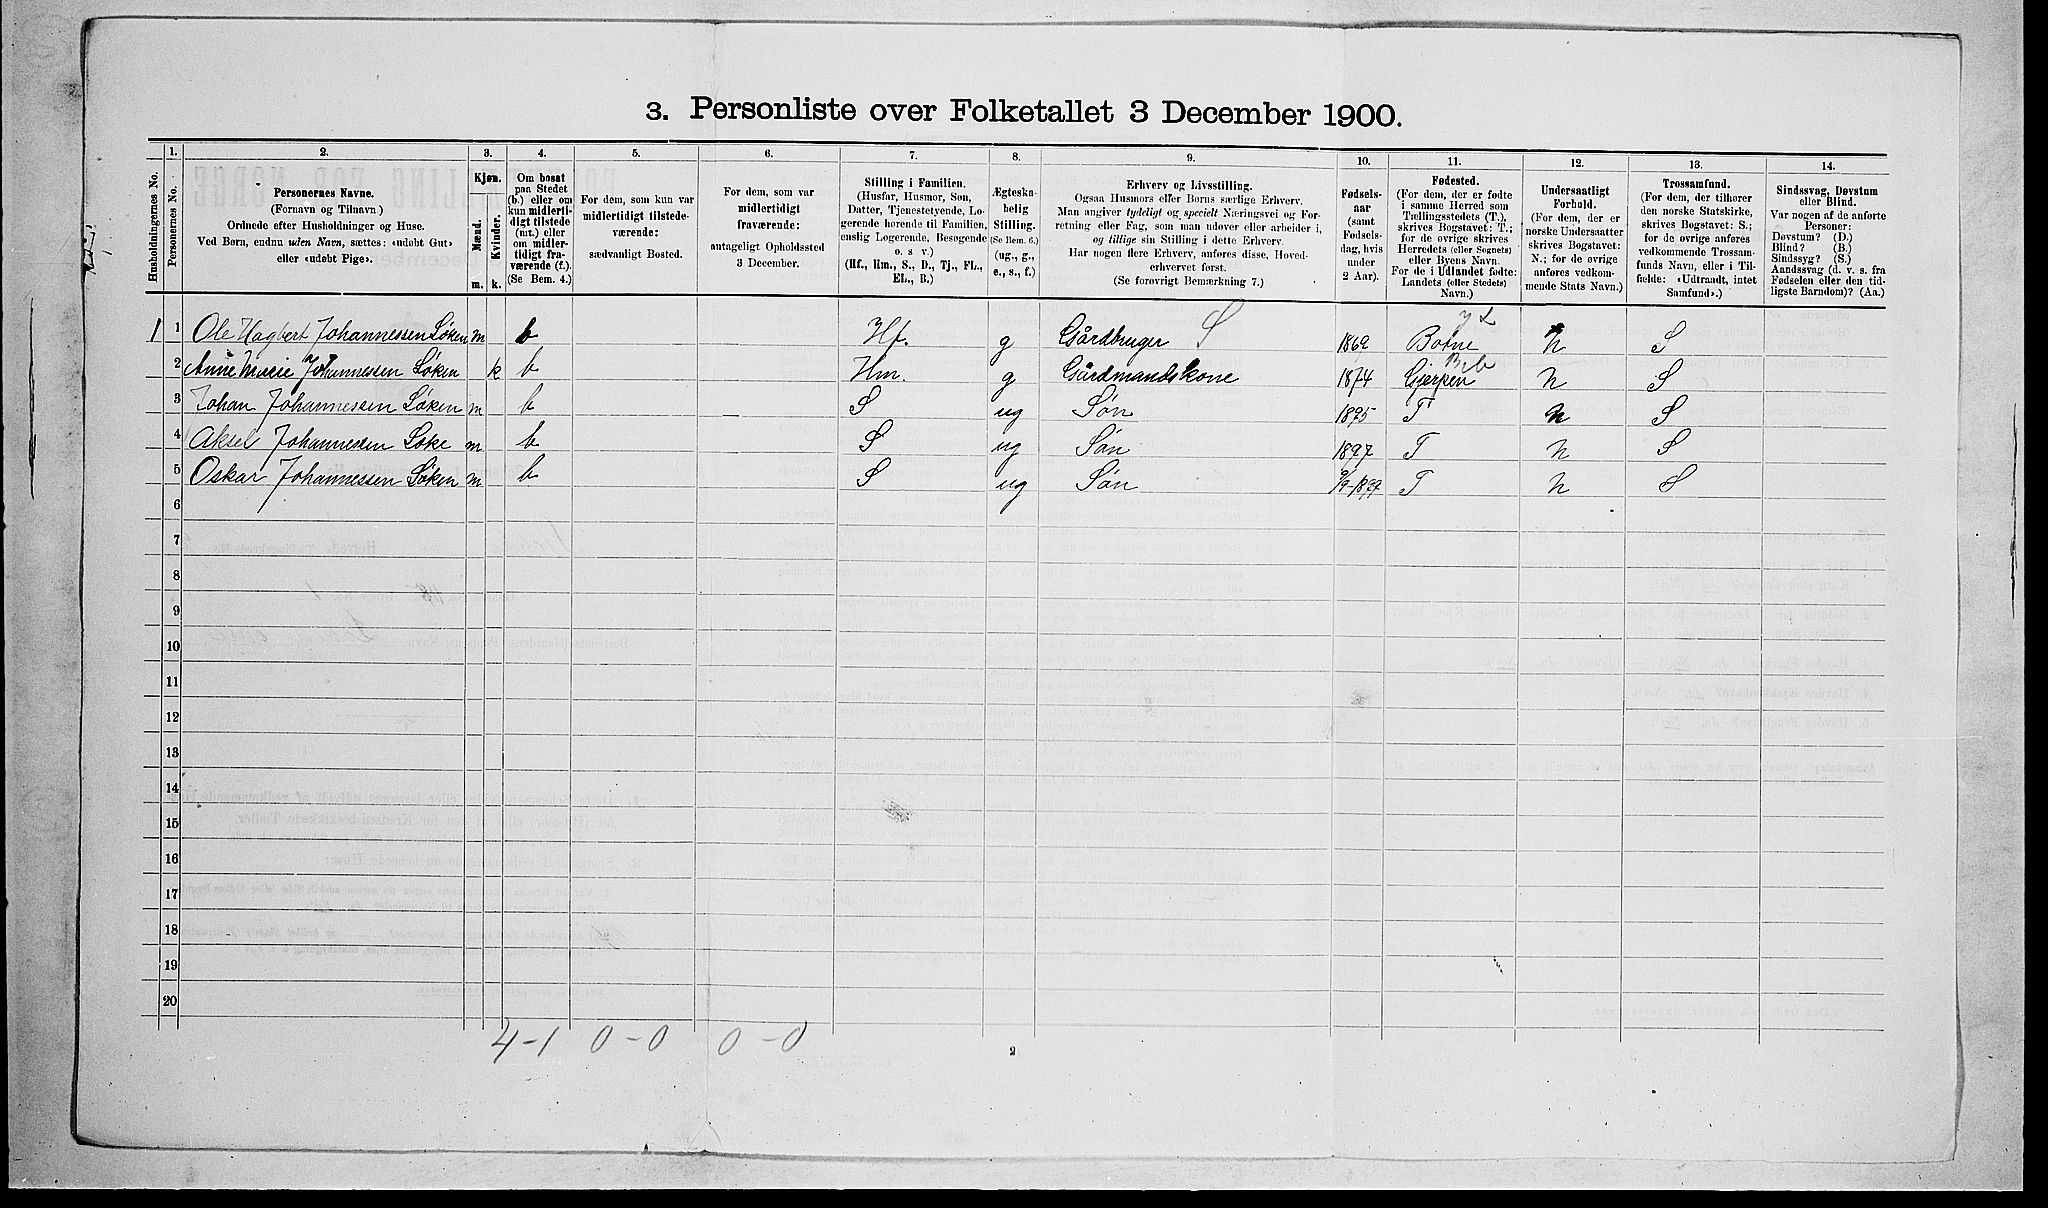 3. Personliste over Folketallet 3 December 1900.
1. 2. 3. 4. 5. 6. 7. 8. 9. 10. 11. 12. 13. 14.
Husholdningernes No.
Personernes No.
Personernes Navne.
(Fornavn og Tilnavn)
Ordnede efter Husholdninger og Huse.
Ved Børn, endnu uden Navn, sættes: «udøbt Gut»
eller «udøbt Pige».
Kjøn.
Mænd.
Kvinder.
m. k.
Om bosat
paa Stedet
(b.) eller om
kun midlerti-
digt tilstede
(mt.) eller
om midler-
tidigt fra-
værende (f.).
(Se Bem. 4.)
For dem, som kun var
midlertidigt tilstede-
værende:
sædvanligt Bosted.
For dem, som var
midlertidigt
fraværende:
antageligt Opholdssted
3 December.
Stilling i Familien.
(Husfar, Husmor, Søn,
Datter, Tjenestetyende, Lo-
gerende hørende til Familien,
enslig Logerende, Besøgende
o. s. v.)
(Hf., Hm., S., D., Tj., FL.,
EL., B.)
Ægteska-
belig
Stilling.
(Se Bem. 6.)
(ug., g.,
e., s., f.)
Erhverv og Livsstilling.
Ogsaa Husmors eller Børns særlige Erhverv.
Man angiver tydeligt og specielt Næringsvei og For-
retning eller Fag, som man udøver eller arbeider i,
og tillige sin Stilling i dette Erhverv.
Har nogen flere Erhverv, anføres disse, Hoved-
erhvervet først.
(Se forøvrigt Bemærkning 7.)
Fødsels-
aar
(samt
Fødsels-
dag, hvis
under
2 Aar).
Fødested.
(For dem, der er fødte
i samme Herred som
Tællingsstedets (T.),
skrives Bogstavet: T.;
for de øvrige skrives
Herredets (eller Sognets)
eller Byens Navn.
For de i Udlandet fødte:
Landets (eller Stedets)
Navn.)
Undersaatligt
Forhold.
(For dem, der er
norske Undersaatter
skrives Bogstavet:
N.; for de øvrige
anføres vedkom-
mende Stats Navn.)
Trossamfund.
(For dem, der tilhører
den norske Statskirke,
skrives Bogstavet: S.;
for de øvrige anføres
vedkommende Trossam-
funds Navn, eller i Til-
fælde: «Udtraadt, intet
Samfund».)
Sindssvag, Døvstum
eller Blind.
Var nogen af de anførte
Personer:
Døvstum? (D.)
Blind? (B.)
Sindssyg? (S.)
Aandssvag (d. v. s. fra
Fødselen eller den tid-
ligste Barndom)? (Aa.)
1 1 Ole Hagbert Johannessen Løken m b Hf. g Gårdbruger S 1869 Botne N S
2 Anne Marie Johannessen Løken k b Hm. g Gårdmandskone 1874 Gjerpen Brb N S
3 Johan Johannessen Løken m b S ug Søn 1895 T N S
4 Aksel Johannessen Løke m b S ug Søn 1897 T N S
5 Oskar Johannessen Løken m b S ug Søn T N S
6
7
8
9
10
11
12
13
14
15
16
17
18
19
20
4 - 1 0 - 0 0 - 0
2